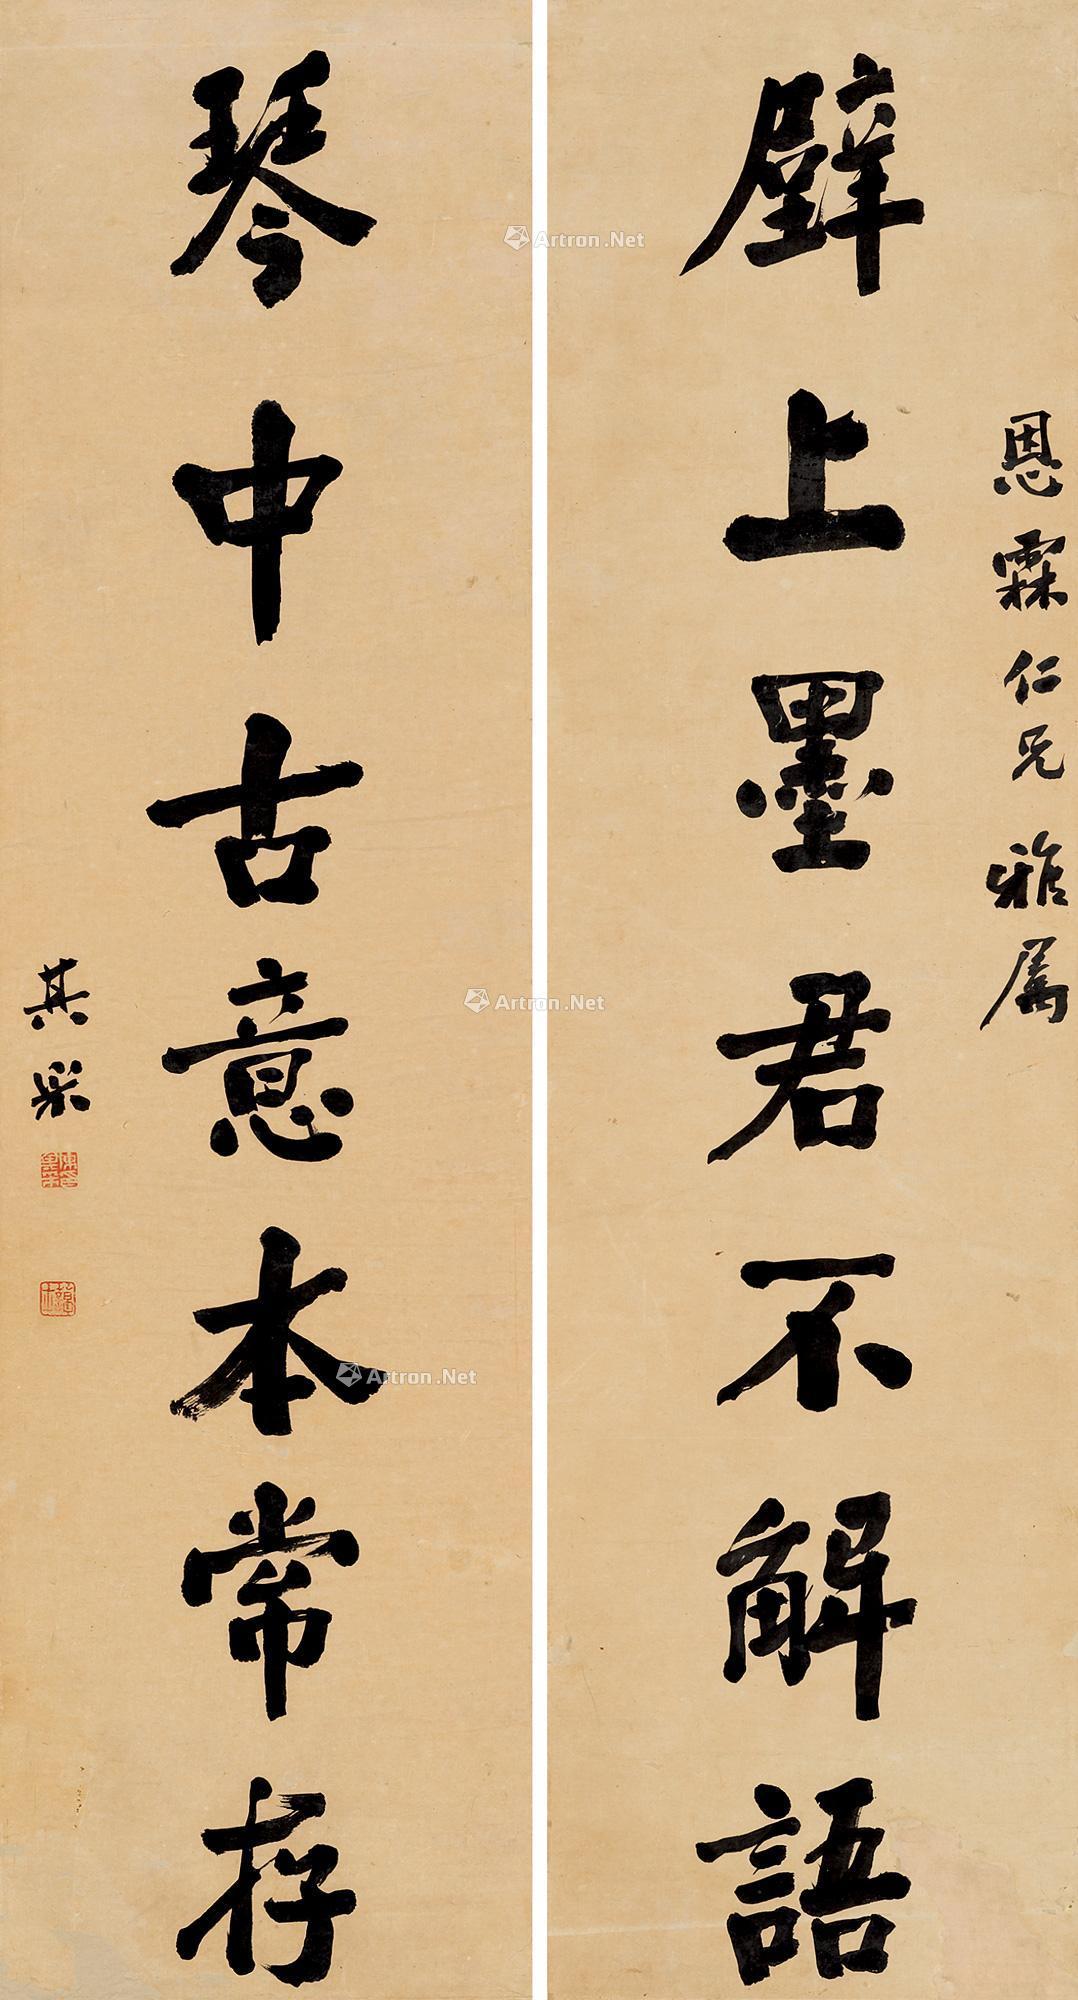 恩霖仁兄雅属
壁上墨君不解語
琴中古意本常存
其采
Artron.Net
Artron.Net
Artron.Net